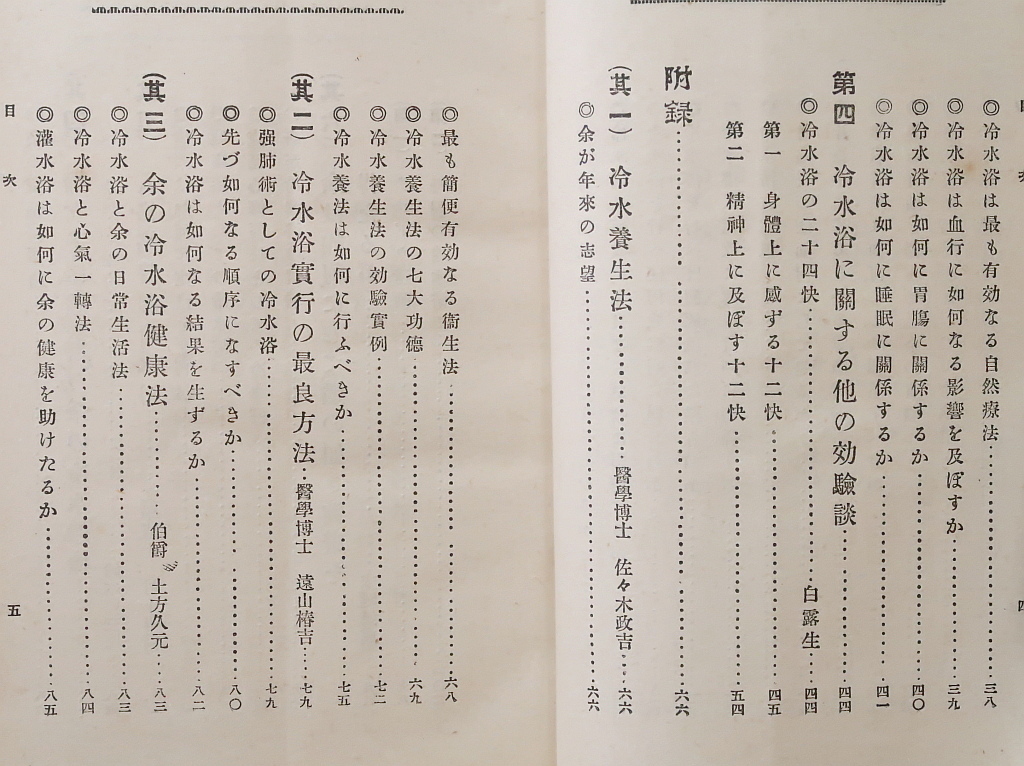 ◎冷水浴は最も有効なる自然療法…三八
◎冷水浴は血行に如何なる影響を及ぼすか…三九
◎冷水浴は如何に胃膓に關係するか…四〇
◎冷水浴は如何に睡眠に關係するか…四一
第四 冷水浴に關する他の効驗談…四四
◎冷水浴の二十四快…白露生…四四
第一 身體上に感ずる十二快…四五
第二 精神上に及ぼす十二快…五四
附録…六六
(其一) 冷水養生法…醫學博士 佐々木政吉…六六
◎余が年來の志望…六六
◎最も簡便有効なる衞生法…六八
◎冷水養生法の七大功德…六九
◎冷水養生法の効驗實例…七二
◎冷水養法は如何に行ふべきか…七五
(其二) 冷水浴實行の最良方法…醫學博士 遠山椿吉…七九
◎强肺術としての冷水浴…七九
◎先づ如何なる順序になすべきか…八〇
◎冷水浴は如何なる結果を生ずるか…八二
(其三) 余の冷水浴健康法…伯爵 土方久元…八三
◎冷水浴と余の日常生活法…八三
◎冷水浴と心氣一轉法…八四
◎灌水浴は如何に余の健康を助けたるか…八五
目次 五